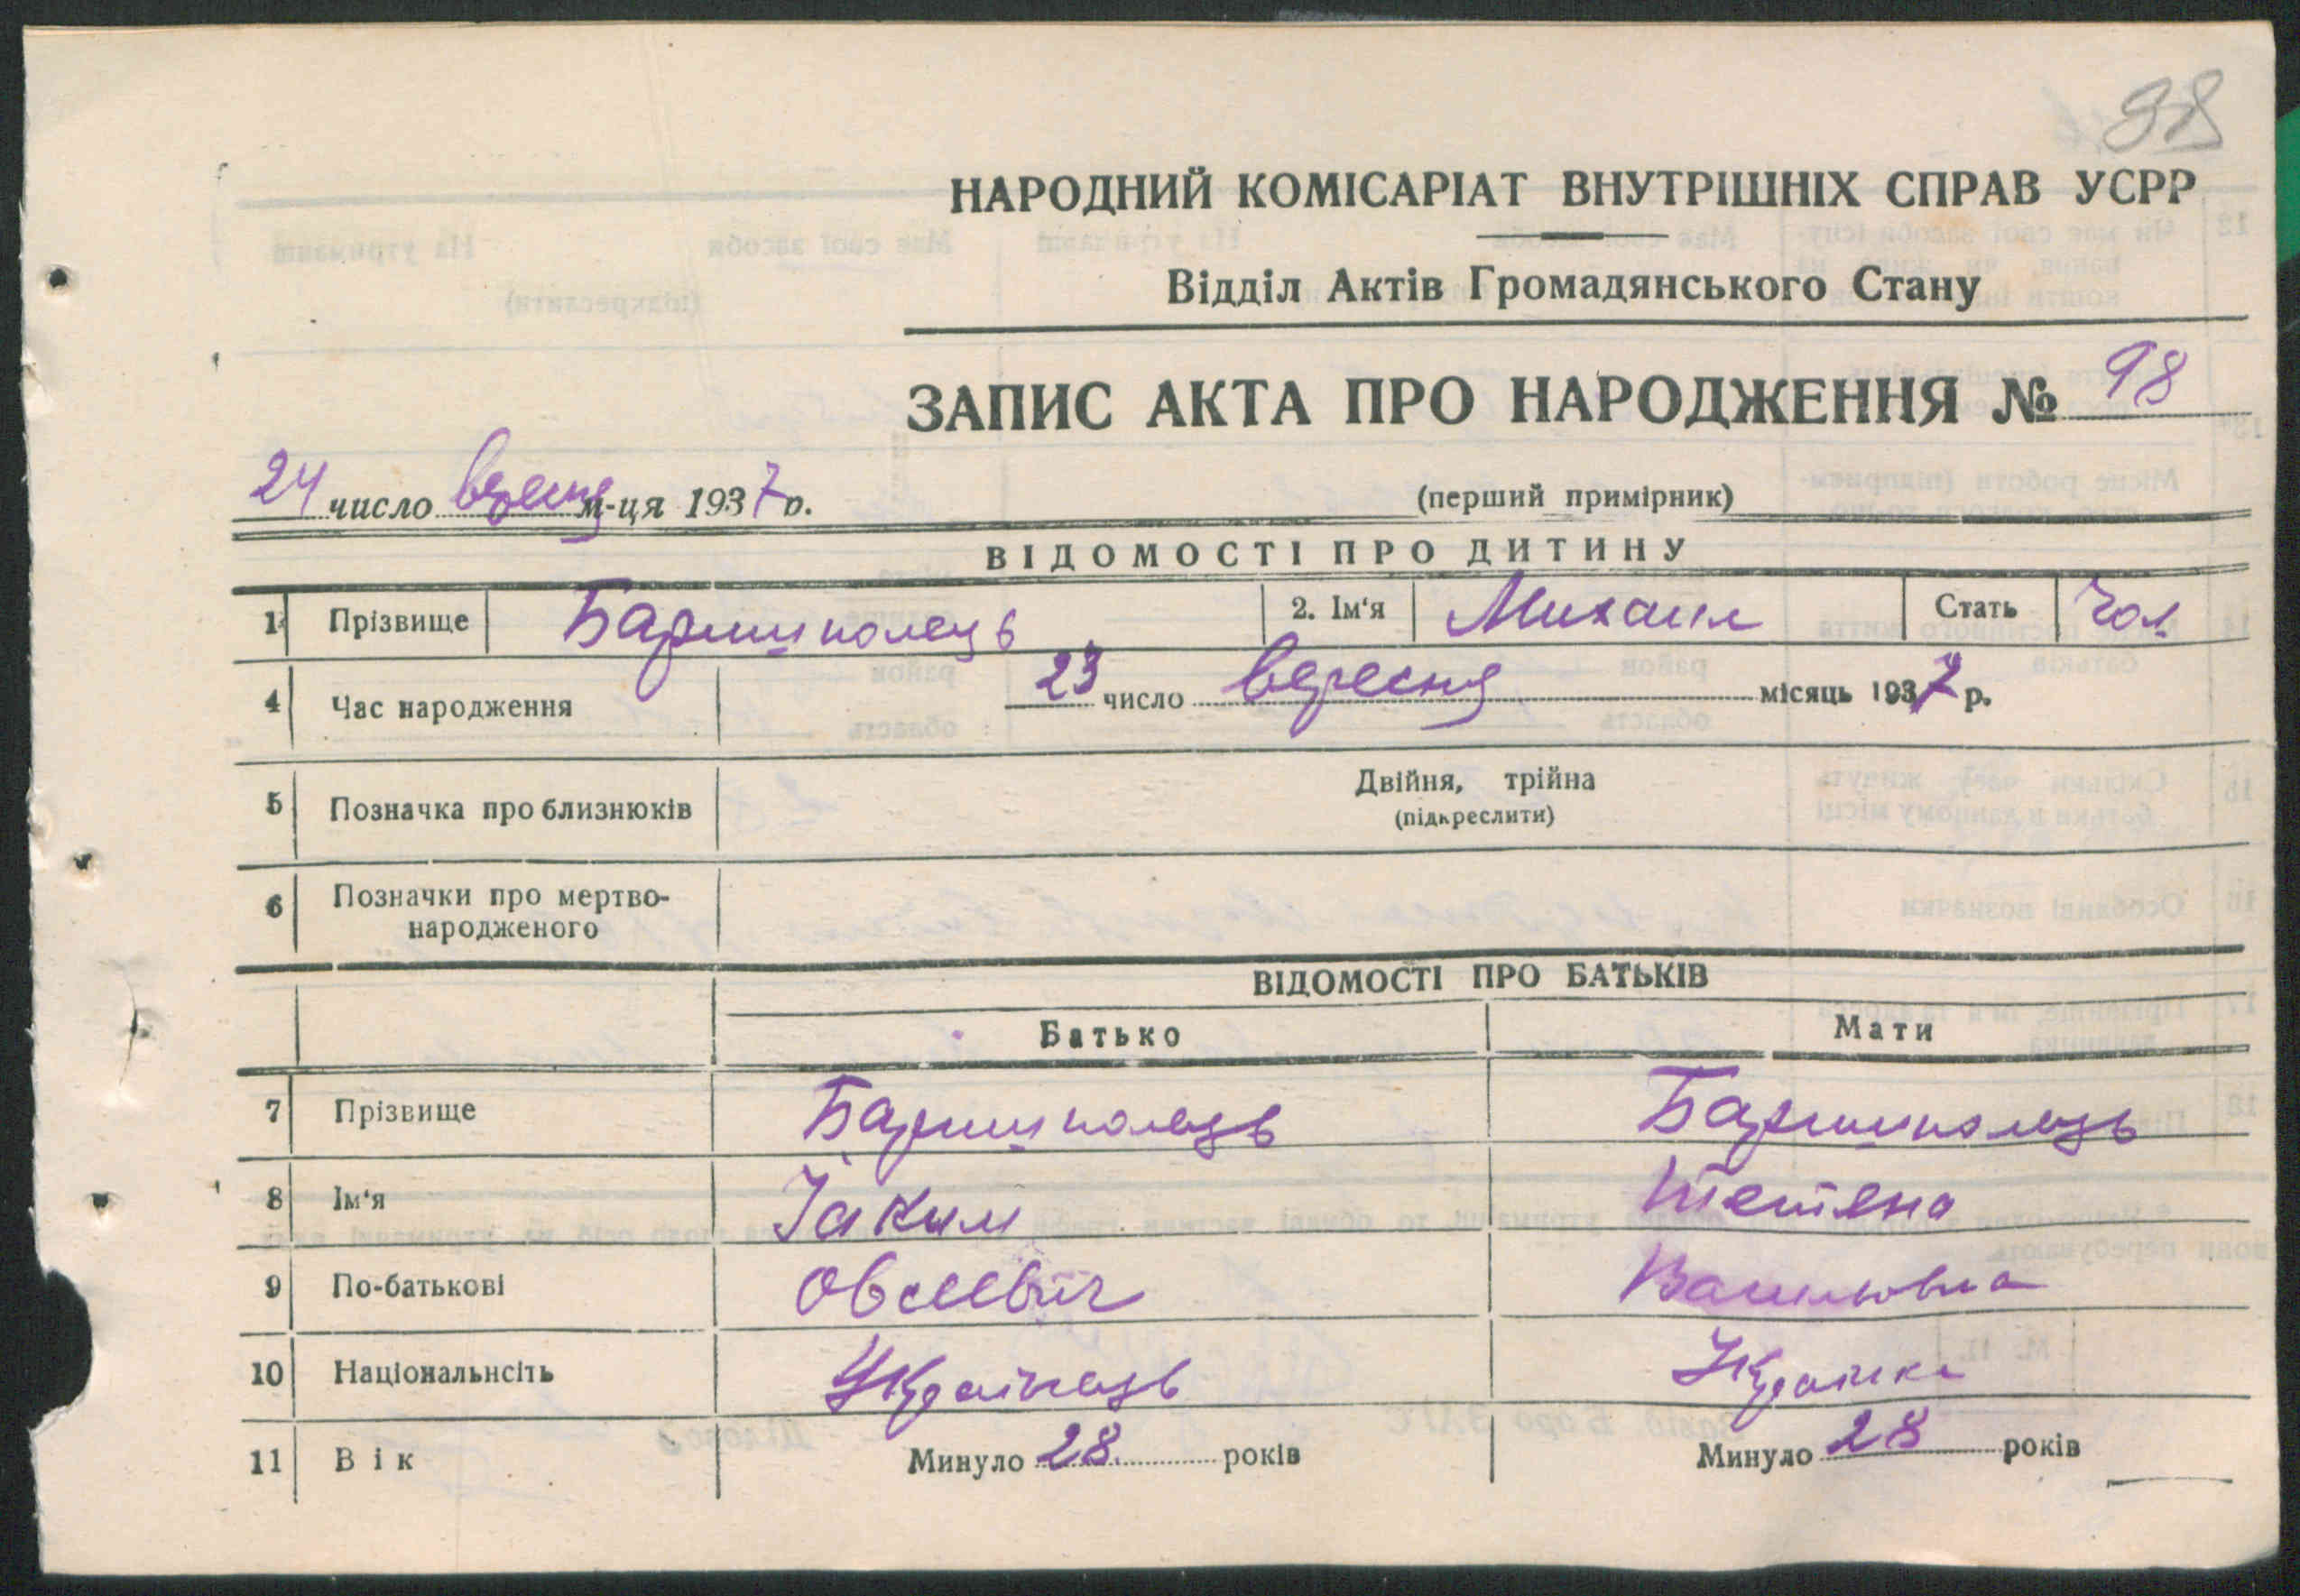 98
НАРОДНИЙ КОМІСАРІАТ ВНУТРІШНІХ СПРАВ УСРР
Відділ Актів Громадянського Стану
ЗАПИС АКТА ПРО НАРОДЖЕННЯ № 98
24 число вересня м-ця 1937 р.
(перший примірник)
ВІДОМОСТІ ПРО ДИТИНУ
1 Прізвище Баришполець 2. Ім'я Михаил Стать Чол
4 Час народження 23 число вересня місяць 1937 р.
5 Позначка про близнюків Двійня, трійна
(підкреслити)
6 Позначки про мертво-
народженого
ВІДОМОСТІ ПРО БАТЬКІВ
Батько Мати
7 Прізвище Баришполець Баришполець
8 Ім'я Јаким Тетяна
9 По-батькові Овсеевич Василювна
10 Національнсіть Українець Українка
11 Вік Минуло 28 років Минуло 28 років